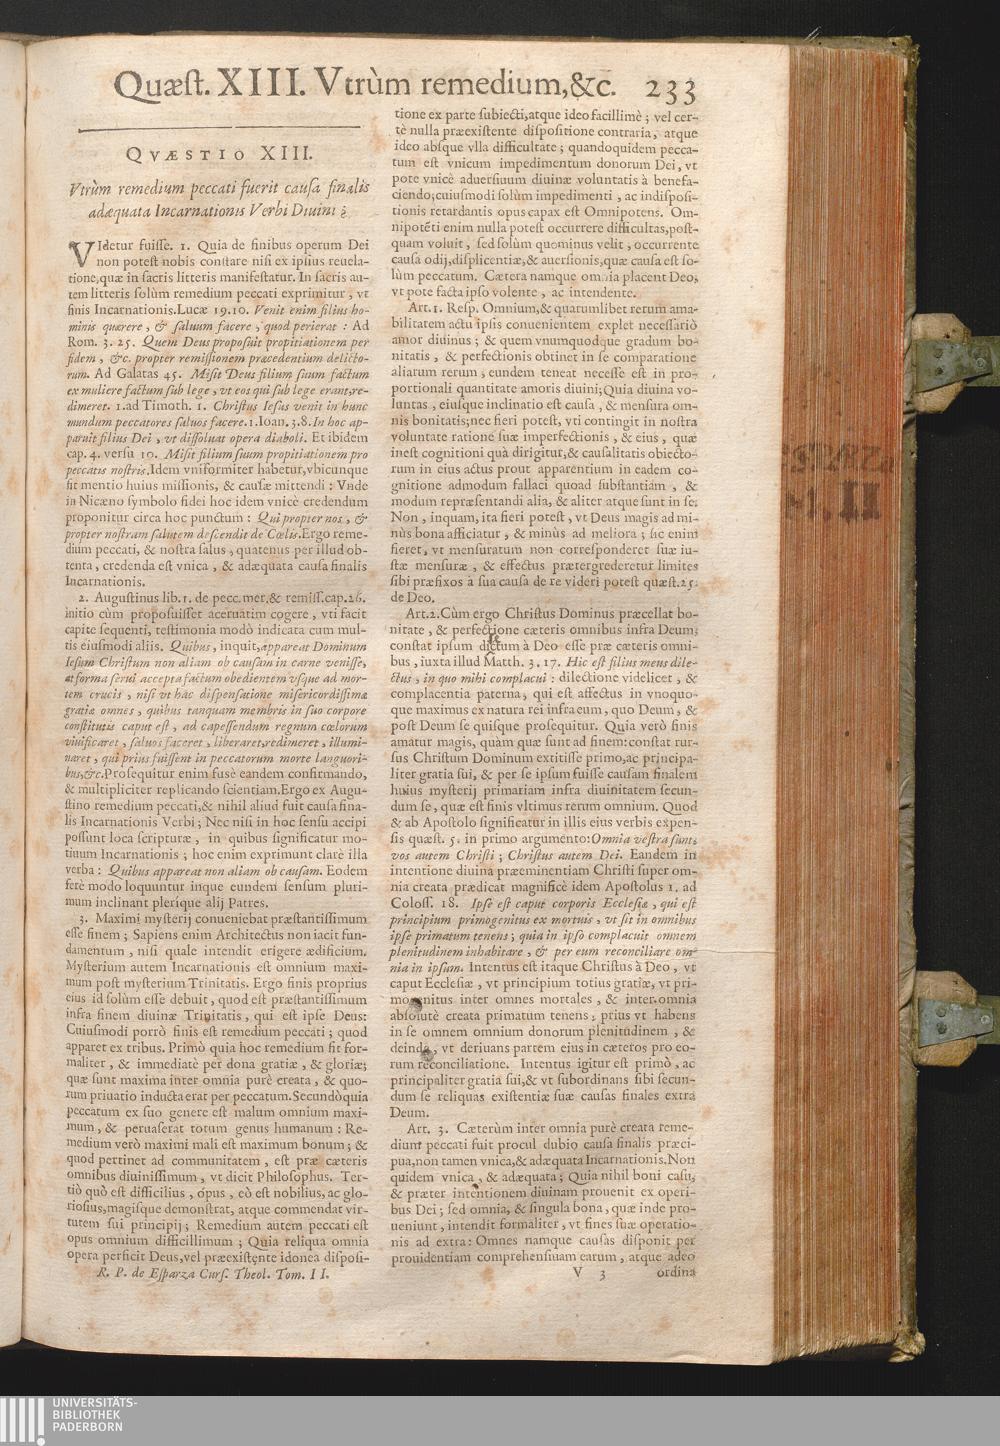 Quæst. XIII. Vtrùm remedium, &c. 233
QVÆSTIO XIII.
Vtrùm remedium peccati fuerit causa finalis
adæquata Incarnationis Verbi Diuini?
VIdetur fuisse. 1. Quia de finibus operum Dei
non potest nobis constare nisi ex ipsius reuela-
tione, quæ in sacris litteris manifestatur. In sacris au-
tem litteris solùm remedium peccati exprimitur, vt
finis Incarnationis. Lucæ 19. 10. Venit enim filius ho-
minis quærere, & saluum facere, quod perierat: Ad
Rom. 3. 25. Quem Deus proposuit propitiationem per
fidem, &c. propter remissionem præcedentium delicto-
rum. Ad Galatas 45. Misit Deus filium suum factum
ex muliere factum sub lege, vt eos qui sub lege erant, re-
dimeret. 1. ad Timoth. 1. Christus Iesus venit in hunc
mundum peccatores saluos facere. 1. Ioan. 3. 8. In hoc ap-
paruit filius Dei, vt dissoluat opera diaboli. Et ibidem
cap. 4. versu 10. Misit filium suum propitiationem pro
peccatis nostris. Idem vniformiter habetur, vbicunque
fit mentio huius missionis, & causæ mittendi: Vnde
in Nicæno symbolo fidei hoc idem vnicè credendum
proponitur circa hoc punctum: Qui propter nos, &
propter nostram salutem descendit de Cœlis. Ergo reme-
dium peccati, & nostra salus, quatenus per illud ob-
tenta, credenda est vnica, & adæquata causa finalis
Incarnationis.
2. Augustinus lib. 1. de pecc. mer. & remiss. cap. 26.
initio cùm proposuisset aceruatim cogere, vti facit
capite sequenti, testimonia modò indicata cum mul-
tis eiusmodi aliis. Quibus, inquit, appareat Dominum
Iesum Christum non aliam ob causam in carne venisse,
at forma serui accepta factum obedientem vsque ad mor-
tem crucis, nisi vt hac dispensatione misericordissimæ
gratiæ omnes, quibus tanquam membris in suo corpore
constitutis caput est, ad capessendum regnum cœlorum
viuificaret, saluos faceret, liberaret, redimeret, illumi-
naret, qui prius fuissent in peccatorum morte languori-
bus, &c. Prosequitur enim fusè eandem confirmando,
& multipliciter replicando scientiam. Ergo ex Augu-
stino remedium peccati, & nihil aliud fuit causa fina-
lis Incarnationis Verbi; Nec nisi in hoc sensu accipi
possunt loca scripturæ, in quibus significatur mo-
tiuum Incarnationis; hoc enim exprimunt clarè illa
verba: Quibus appareat non aliam ob causam. Eodem
ferè modo loquuntur inque eundem sensum pluri-
mum inclinant plerique alij Patres.
3. Maximi mysterij conueniebat præstantissimum
esse finem; Sapiens enim Architectus non iacit fun-
damentum, nisi quale intendit erigere ædificium.
Mysterium autem Incarnationis est omnium maxi-
mum post mysterium Trinitatis. Ergo finis proprius
eius id solùm esse debuit, quod est præstantissimum
infra finem diuinæ Trinitatis, qui est ipse Deus:
Cuiusmodi porrò finis est remedium peccati; quod
apparet ex tribus. Primò quia hoc remedium fit for-
maliter, & immediatè per dona gratiæ, & gloriæ;
quæ sunt maxima inter omnia purè creata, & quo-
rum priuatio inducta erat per peccatum. Secundò quia
peccatum ex suo genere est malum omnium maxi-
mum, & peruaserat totum genus humanum: Re-
medium verò maximi mali est maximum bonum; &
quod pertinet ad communitatem, est præ cæteris
omnibus diuinissimum, vt dicit Philosophus. Ter-
tiò quò est difficilius, opus, eò est nobilius, ac glo-
riosius, magisque demonstrat, atque commendat vir-
tutem sui principij; Remedium autem peccati est
opus omnium difficillimum; Quia reliqua omnia
opera perficit Deus, vel præexistente idonea disposi-
R. P. de Esparza Curs. Theol. Tom. II.
tione ex parte subiecti, atque ideo facillimè; vel cer-
tè nulla præexistente dispositione contraria, atque
ideo absque vlla difficultate; quandoquidem pecca-
tum est vnicum impedimentum donorum Dei, vt
pote vnicè aduersiuum diuinæ voluntatis à benefa-
ciendo; cuiusmodi solùm impedimenti, ac indisposi-
tionis retardantis opus capax est Omnipotens. Om-
nipotēti enim nulla potest occurrere difficultas, post-
quam voluit, sed solùm quominus velit, occurrente
causa odij, displicentiæ, & auersionis, quæ causa est so-
lùm peccatum. Cætera namque omnia placent Deo,
vt pote facta ipso volente, ac intendente.
Art. 1. Resp. Omnium, & quarumlibet rerum ama-
bilitatem actu ipsis conuenientem explet necessariò
amor diuinus; & quem vnumquodque gradum bo-
nitatis, & perfectionis obtinet in se comparatione
aliarum rerum, eundem teneat necesse est in pro-
portionali quantitate amoris diuini; Quia diuina vo-
luntas, eiusque inclinatio est causa, & mensura om-
nis bonitatis; nec fieri potest, vti contingit in nostra
voluntate ratione suæ imperfectionis, & eius, quæ
inest cognitioni quà dirigitur, & causalitatis obiecto-
rum in eius actus prout apparentium in eadem co-
gnitione admodum fallaci quoad substantiam, &
modum repræsentandi alia, & aliter atque sunt in se:
Non, inquam, ita fieri potest, vt Deus magis ad mi-
nùs bona afficiatur, & minùs ad meliora; sic enim
fieret, vt mensuratum non corresponderet suæ iu-
stæ mensuræ, & effectus prætergrederetur limites
sibi præfixos à sua causa de re videri potest quæst. 25.
de Deo.
Art. 2. Cùm ergo Christus Dominus præcellat bo-
nitate, & perfectione cæteris omnibus infra Deum;
constat ipsum dictum à Deo esse præ cæteris omni-
bus, iuxta illud Matth. 3. 17. Hic est filius meus dile-
ctus, in quo mihi complacui: dilectione videlicet, &
complacentia paterna, qui est affectus in vnoquo-
que maximus ex natura rei infra eum, quo Deum, &
post Deum se quisque prosequitur. Quia verò finis
amatur magis, quàm quæ sunt ad finem: constat rur-
sus Christum Dominum extitisse primo, ac principa-
liter gratia sui, & per se ipsum fuisse causam finalem
huius mysterij primariam infra diuinitatem secun-
dum se, quæ est finis vltimus rerum omnium. Quod
& ab Apostolo significatur in illis eius verbis expen-
sis quæst. 5. in primo argumento: Omnia vestra sunt;
vos autem Christi; Christus autem Dei. Eandem in
intentione diuina præeminentiam Christi super om-
nia creata prædicat magnificè idem Apostolus 1. ad
Coloss. 18. Ipse est caput corporis Ecclesiæ, qui est
principium primogenitus ex mortuis, vt sit in omnibus
ipse primatum tenens; quia in ipso complacuit omnem
plenitudinem inhabitare, & per eum reconciliare om-
nia in ipsum. Intentus est itaque Christus à Deo, vt
caput Ecclesiæ, vt principium totius gratiæ, vt pri-
mogenitus inter omnes mortales, & inter omnia
absolutè creata primatum tenens; prius vt habens
in se omnem omnium donorum plenitudinem, &
deinde, vt deriuans partem eius in cæteros pro eo-
rum reconciliatione. Intentus igitur est primò, ac
principaliter gratia sui, & vt subordinans sibi secun-
dum se reliquas existentiæ suæ causas finales extra
Deum.
Art. 3. Cæterùm inter omnia purè creata reme-
dium peccati fuit procul dubio causa finalis præci-
pua, non tamen vnica, & adæquata Incarnationis. Non
quidem vnica, & adæquata; Quia nihil boni casu,
& præter intentionem diuinam prouenit ex operi-
bus Dei; sed omnia, & singula bona, quæ inde pro-
ueniunt, intendit formaliter, vt fines suæ operatio-
nis ad extra: Omnes namque causas disponit per
prouidentiam comprehensiuam earum, atque adeo
V 3 ordina
UNIVERSITÄTS-
BIBLIOTHEK
PADERBORN